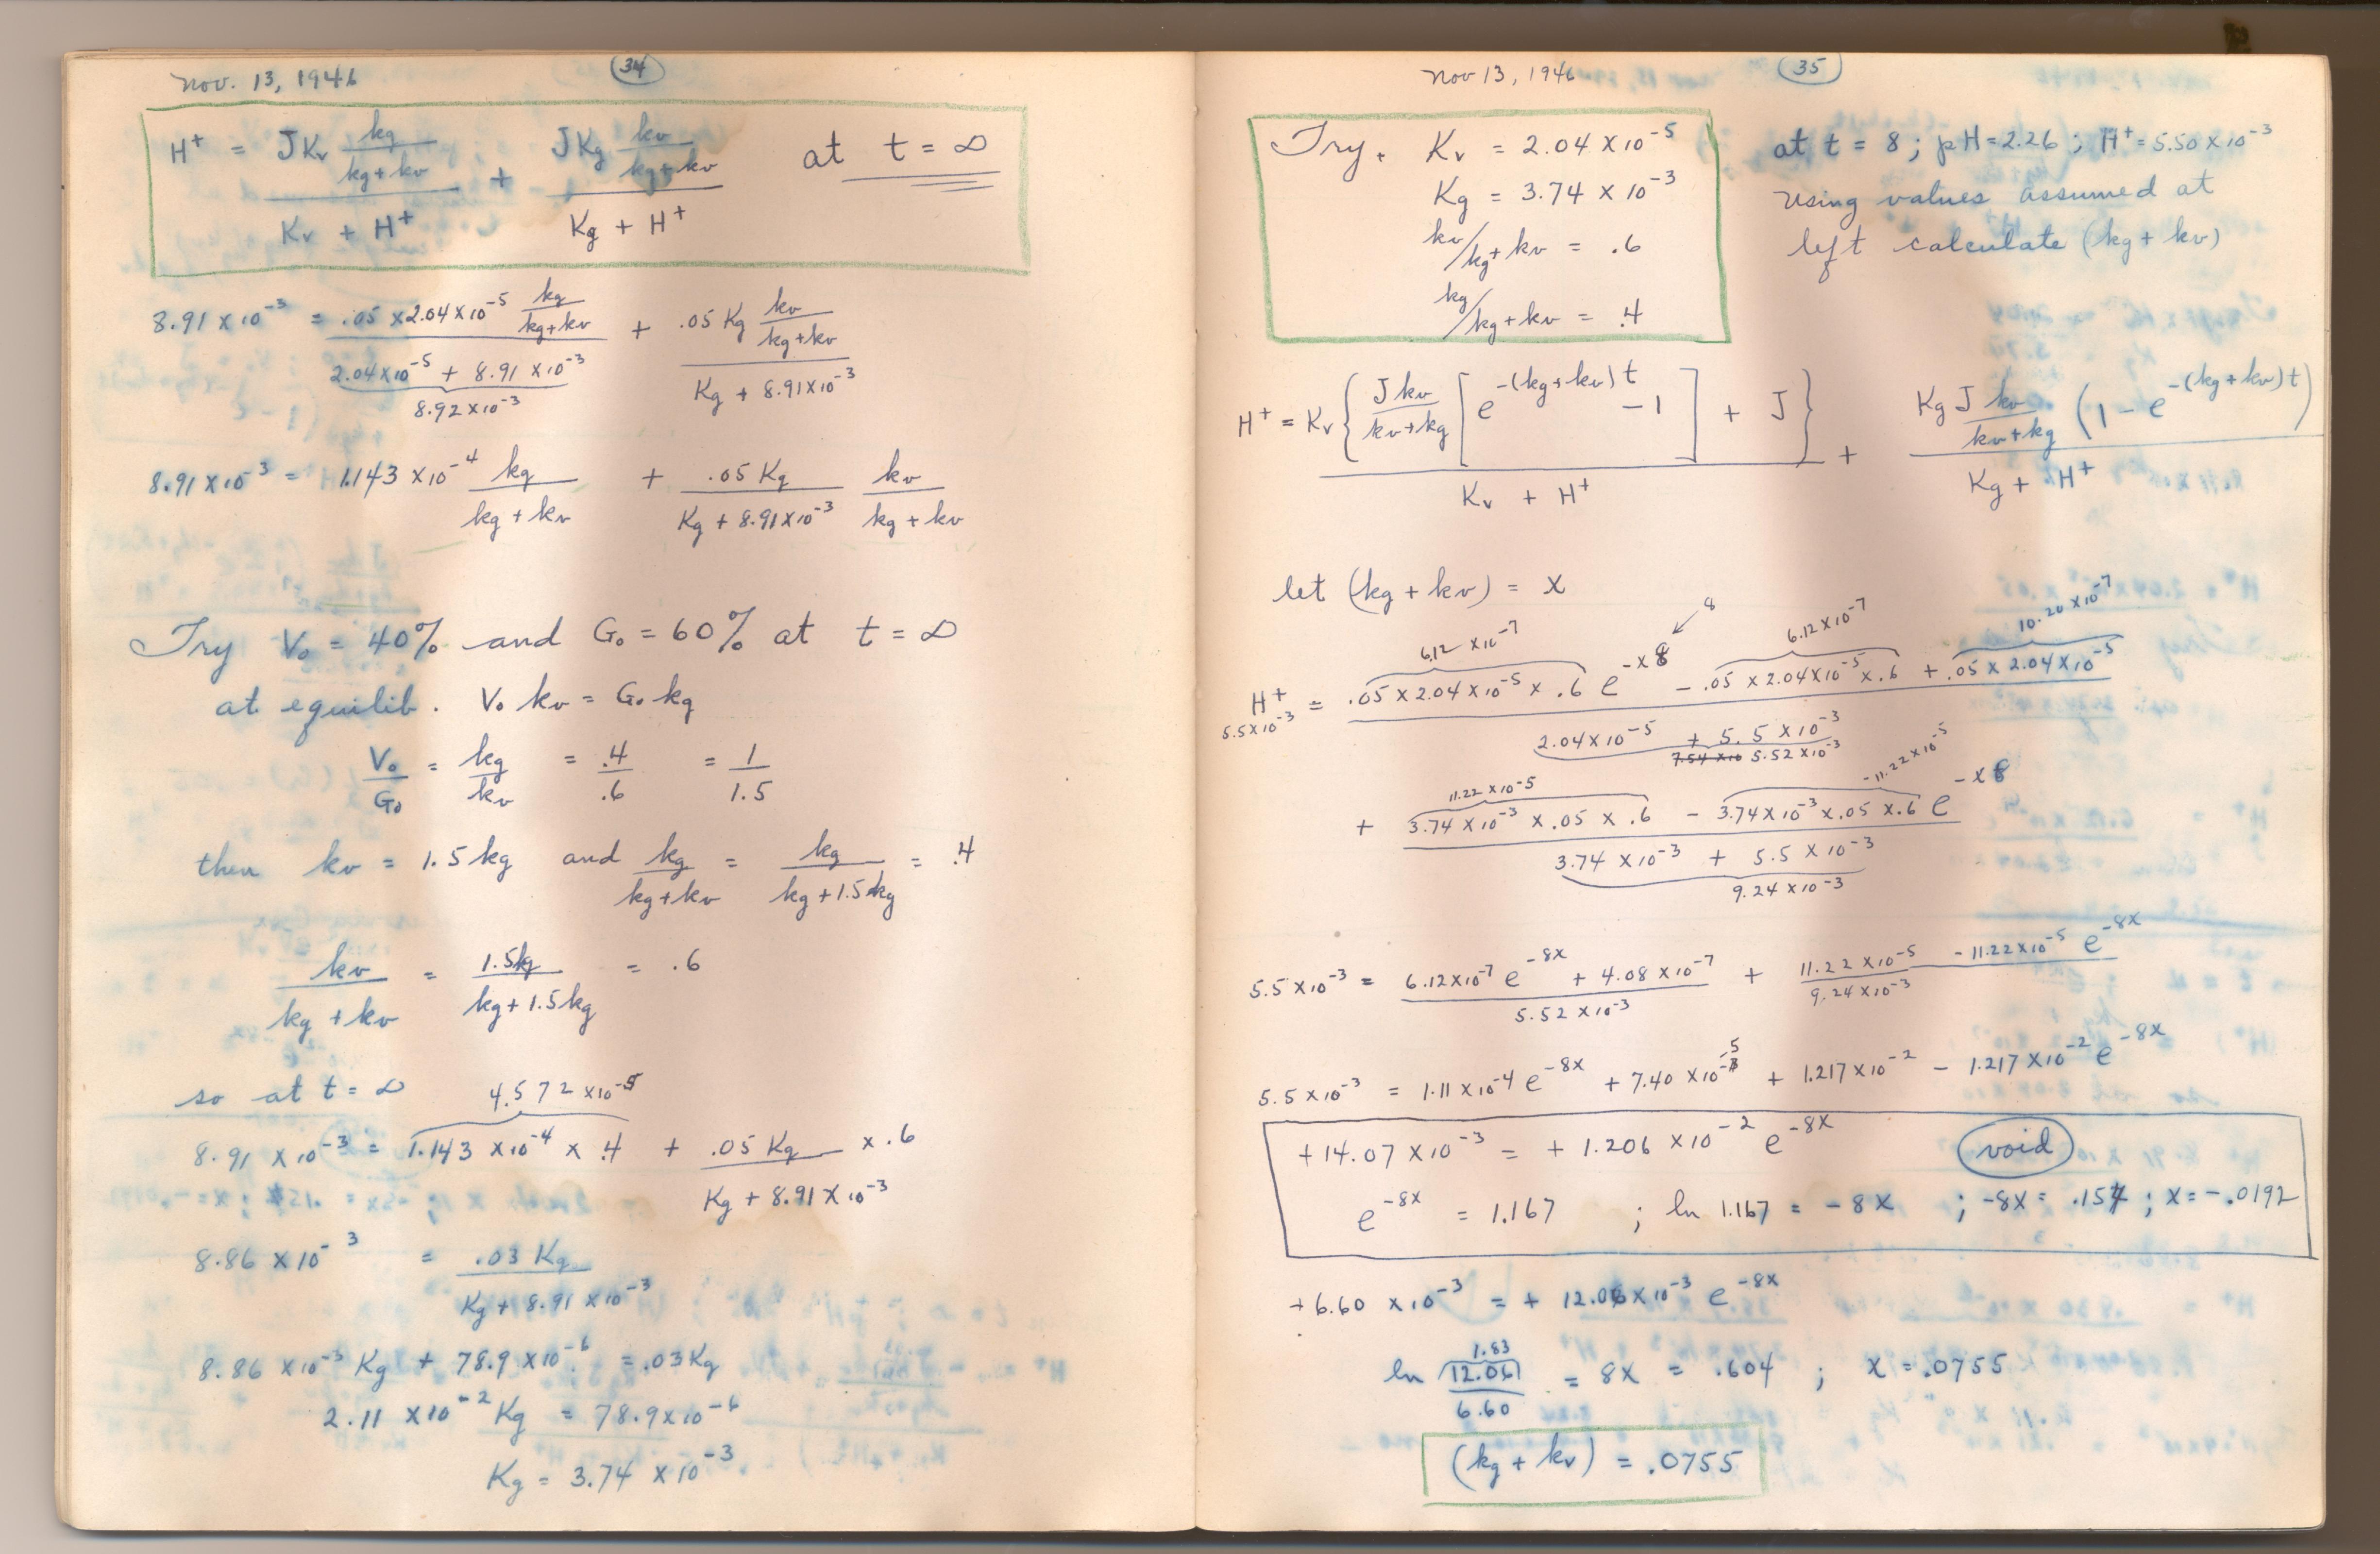 Nov. 13, 1946
34
H⁺ = JKv kg/(kg+kv) / (Kv + H⁺) + JKg kv/(kg+kv) / (Kg + H⁺) at t = ∞
8.91 × 10⁻³ = .05 × 2.04 × 10⁻⁵ kg/(kg+kv) / (2.04×10⁻⁵ + 8.91 × 10⁻³) + .05 Kg kv/(kg+kv) / (Kg + 8.91×10⁻³)
8.92 × 10⁻³
8.91 × 10⁻³ = 1.143 × 10⁻⁴ kg/(kg + kv) + .05 Kg/(Kg + 8.91×10⁻³) kv/(kg + kv)
Try V₀ = 40% and G₀ = 60% at t = ∞
at equilib. V₀ kv = G₀ kg
V₀/G₀ = kg/kv = .4/.6 = 1/1.5
then kv = 1.5 kg and kg/(kg+kv) = kg/(kg+1.5kg) = .4
kv/(kg + kv) = 1.5kg/(kg + 1.5kg) = .6
so at t = ∞
4.572 × 10⁻⁵
8.91 × 10⁻³ = 1.143 × 10⁻⁴ × .4 + .05 Kg/(Kg + 8.91 × 10⁻³) × .6
8.86 × 10⁻³ = .03 Kg/(Kg + 8.91 × 10⁻³)
8.86 × 10⁻³ Kg + 78.9 × 10⁻⁶ = .03 Kg
2.11 × 10⁻² Kg = 78.9 × 10⁻⁶
Kg = 3.74 × 10⁻³
Nov 13, 1946
35
Try. Kv = 2.04 × 10⁻⁵
Kg = 3.74 × 10⁻³
kv/kg+kv = .6
kg/kg+kv = .4
at t = 8; pH = 2.26; H⁺ = 5.50 × 10⁻³
using values assumed at
left calculate (kg + kv)
H⁺ = Kv { J kv/(kv+kg) [ e^-(kg+kv)t - 1 ] + J } / (Kv + H⁺) + Kg J kv/(kv+kg) (1 - e^-(kg+kv)t) / (Kg + H⁺)
let (kg + kv) = x
8
6.12 × 10⁻⁷ 6.12 × 10⁻⁷ 10.20 × 10⁻⁷
H⁺ = .05 × 2.04 × 10⁻⁵ × .6 e^-x8 - .05 × 2.04×10⁻⁵ × .6 + .05 × 2.04×10⁻⁵
5.5×10⁻³
2.04×10⁻⁵ + 5.5 × 10⁻³
7.54 × 10 5.52 × 10⁻³
11.22 × 10⁻⁵ -11.22 × 10⁻⁵
+ 3.74 × 10⁻³ × .05 × .6 - 3.74×10⁻³ × .05 × .6 e^-x8
3.74 × 10⁻³ + 5.5 × 10⁻³
9.24 × 10⁻³
5.5 × 10⁻³ = (6.12×10⁻⁷ e^-8x + 4.08 × 10⁻⁷)/5.52 × 10⁻³ + (11.22 × 10⁻⁵ - 11.22×10⁻⁵ e^-8x)/9.24×10⁻³
5.5 × 10⁻³ = 1.11 × 10⁻⁴ e^-8x + 7.40 × 10⁻⁵ + 1.217×10⁻² - 1.217 × 10⁻² e^-8x
+14.07 × 10⁻³ = + 1.206 × 10⁻² e^-8x void
e^-8x = 1.167 ; ln 1.167 = -8x ; -8x = .154 ; x = -.0192
+6.60 × 10⁻³ = + 12.06 × 10⁻³ e^-8x
1.83
ln 12.06/6.60 = 8x = .604 ; x = .0755
(kg + kv) = .0755